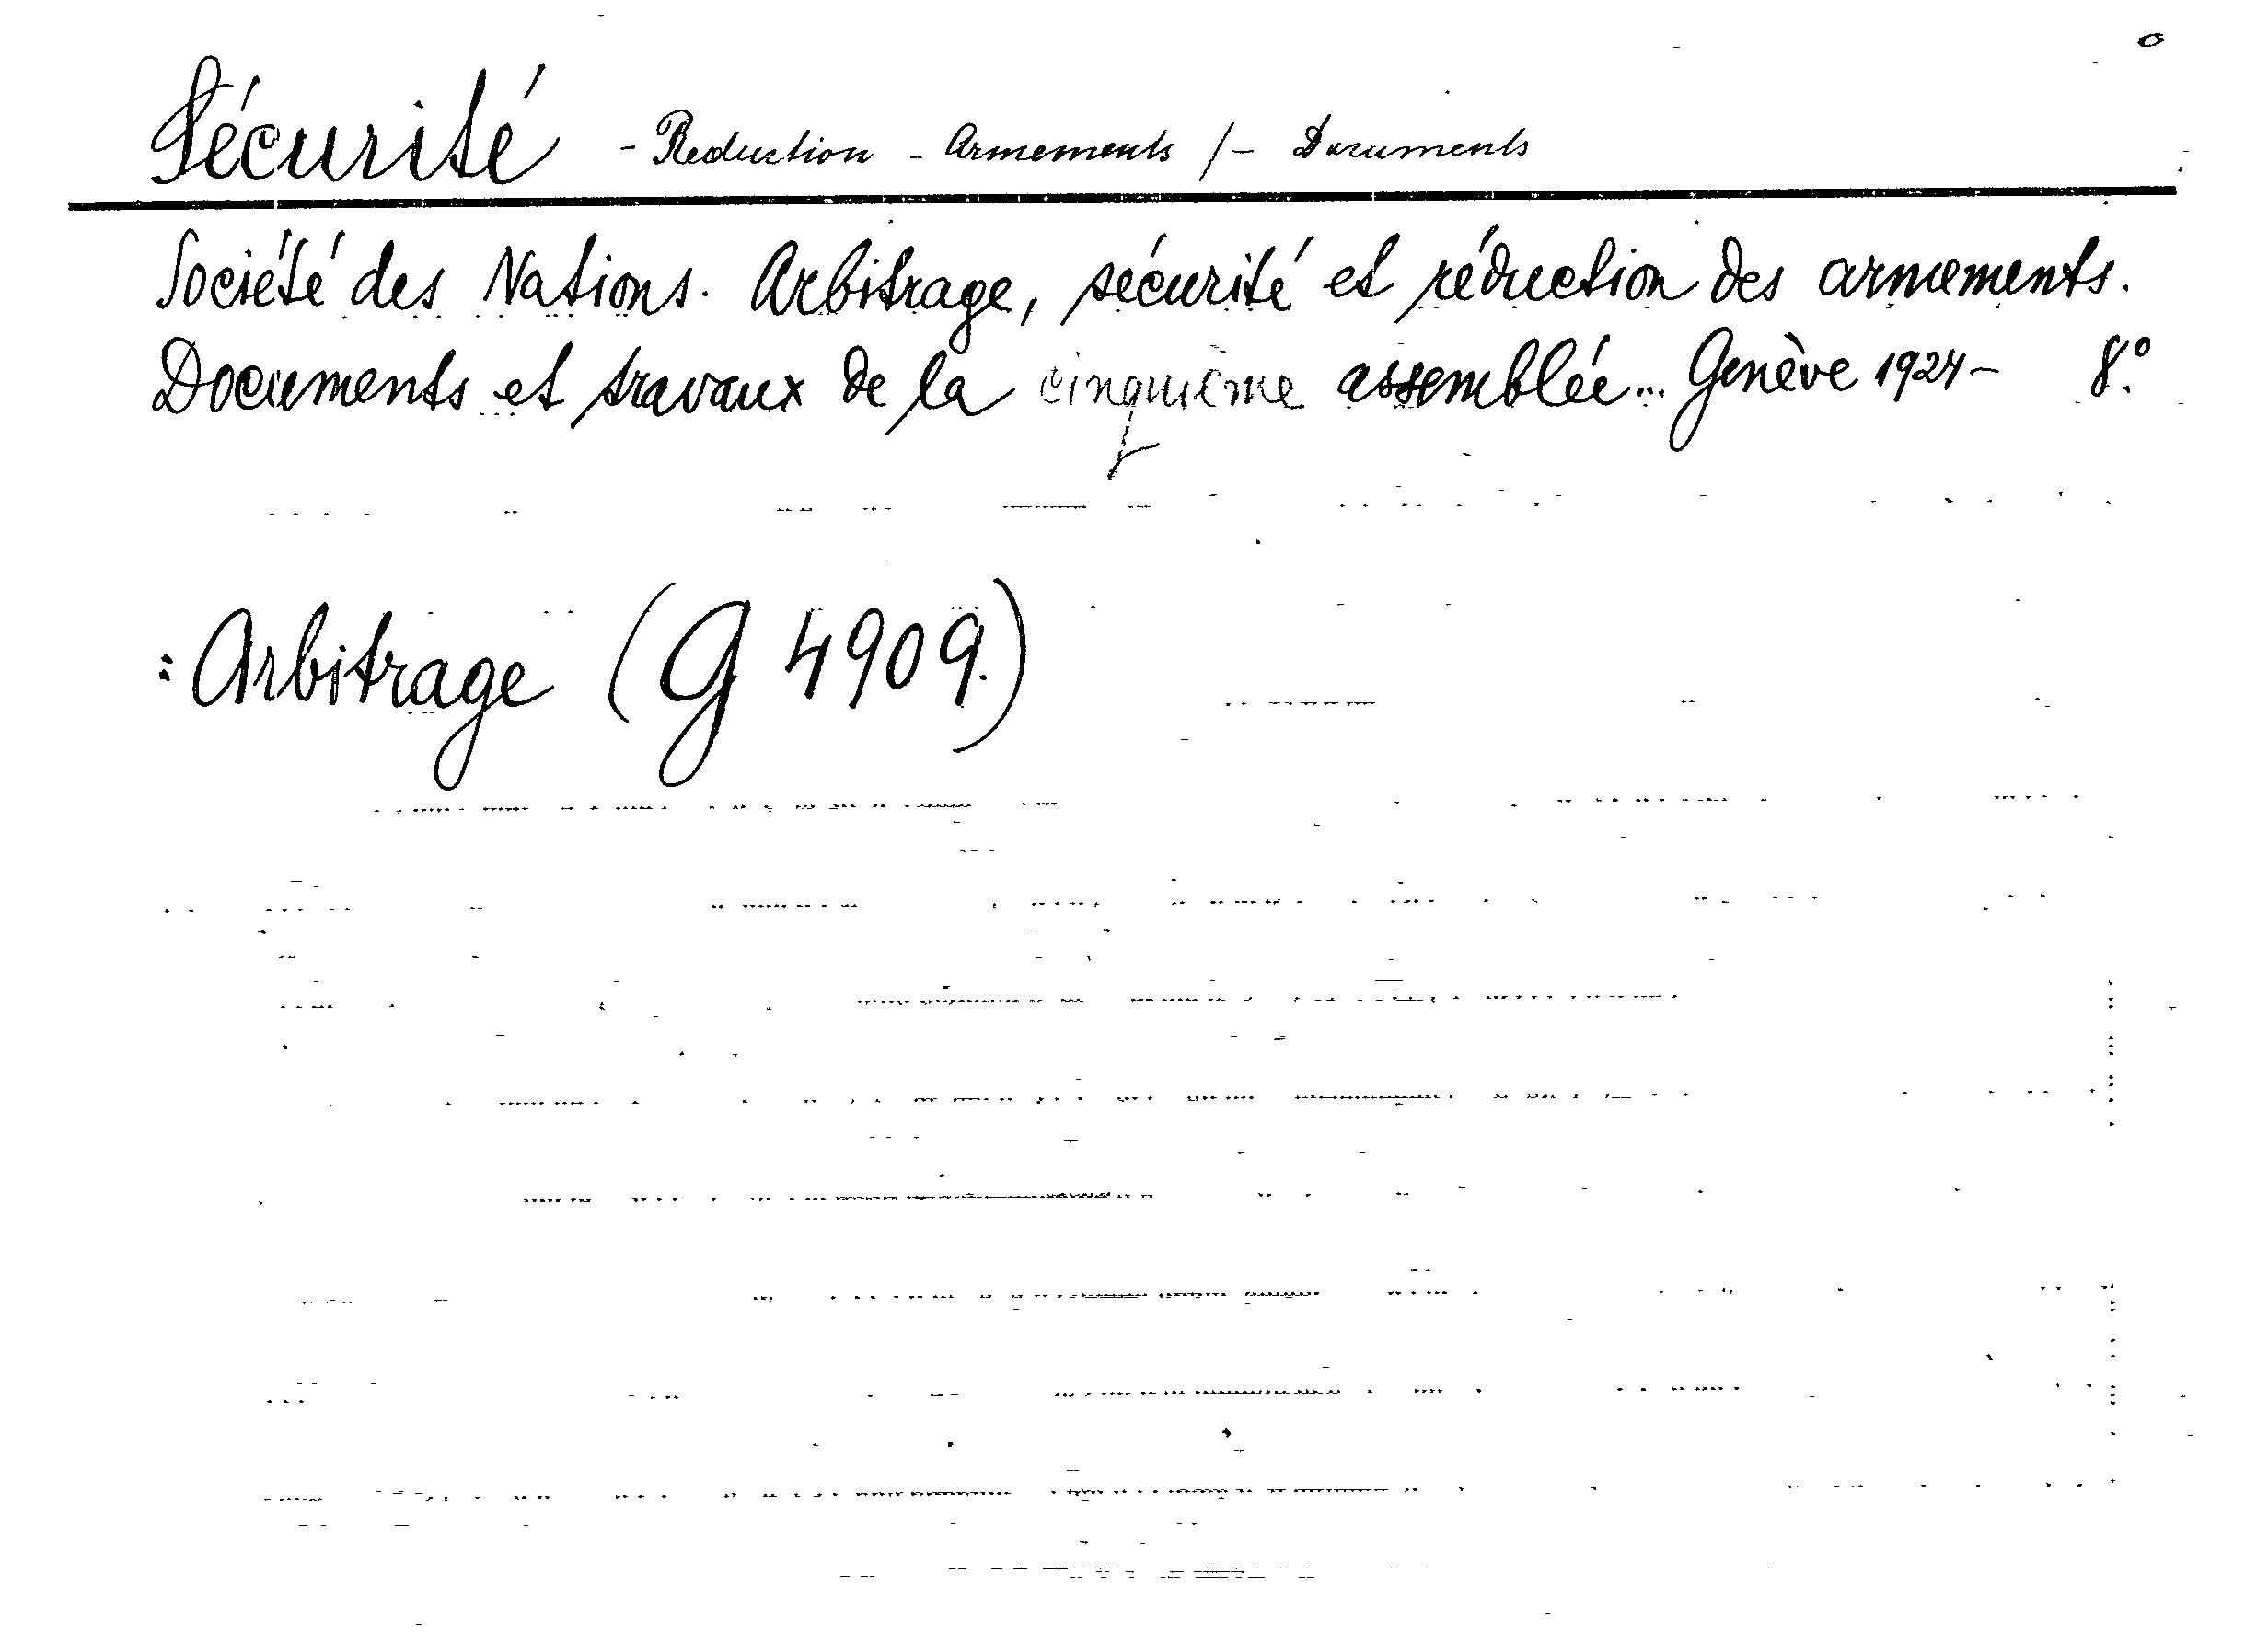 Sécurité - Reduction - Armements /- Documents
Société des Nations. Arbitrage, sécurité et réduction des armements.
Documents et travaux de la cinquième assemblée... Genève 1924- 8º.
: Arbitrage (G 4909.)